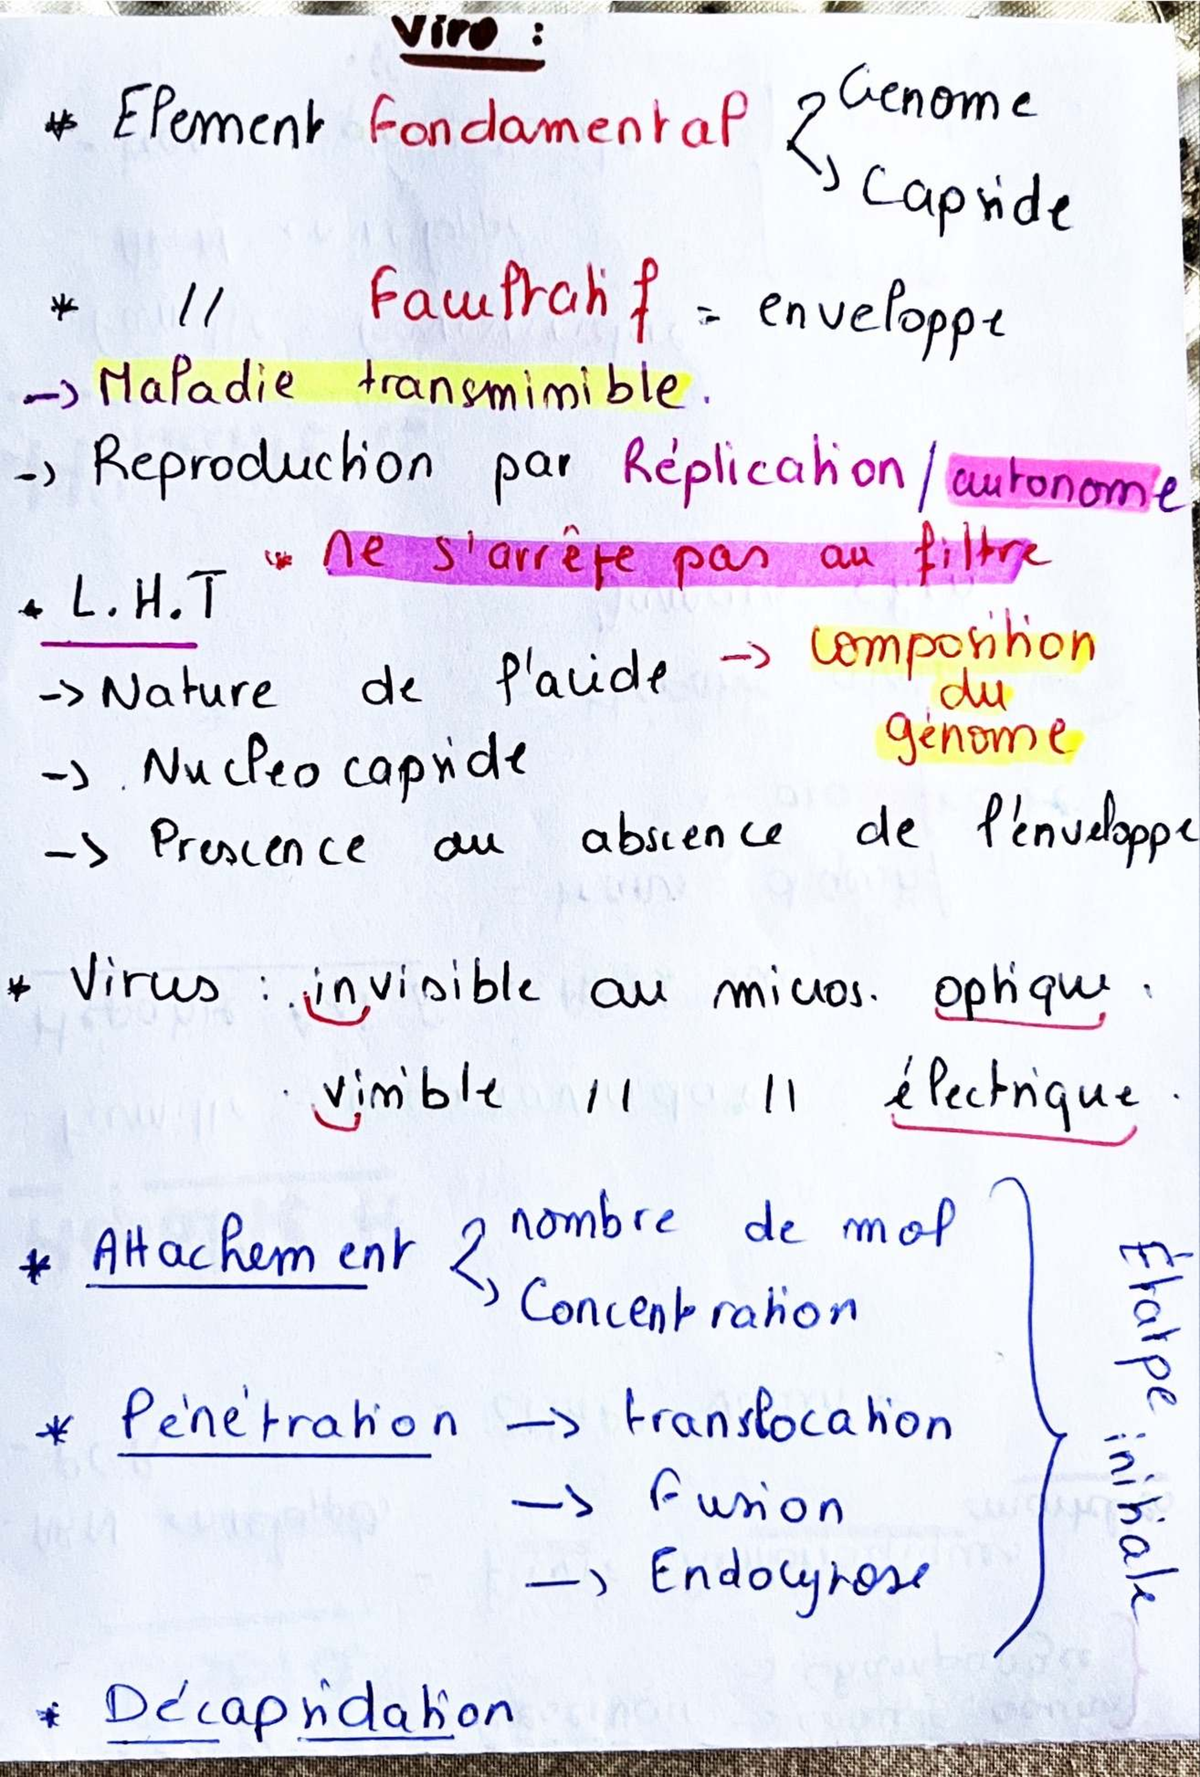 Viro :
* Element fondamental Genome
Capside
* // Facultatif = enveloppe
-> Maladie transmissible.
-> Reproduction par Réplication / autonome
* ne s'arrête pas au filtre
* L.H.T
-> Nature de l'acide -> composition
du
génome
-> Nucleocapside
-> Prescence ou abscence de l'enveloppe
* Virus : invisible au micros. optique.
visible // // électrique.
* Attachement nombre de mol
Concentration
* Pénétration -> translocation
-> Fusion
-> Endocytose
Étatpe initiale
* Décapsidation